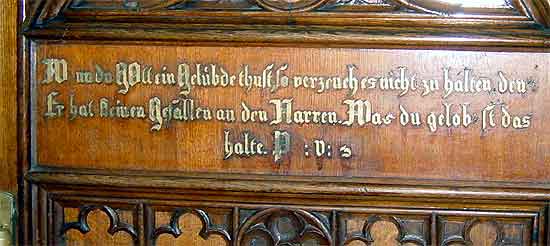 Wnn du Gott ein gelübde thust, so verzeuch es nicht zu halten, den-
Er hat keinen Gefallen an den Narren. Was du gelob-st das
halte. P : v: 5